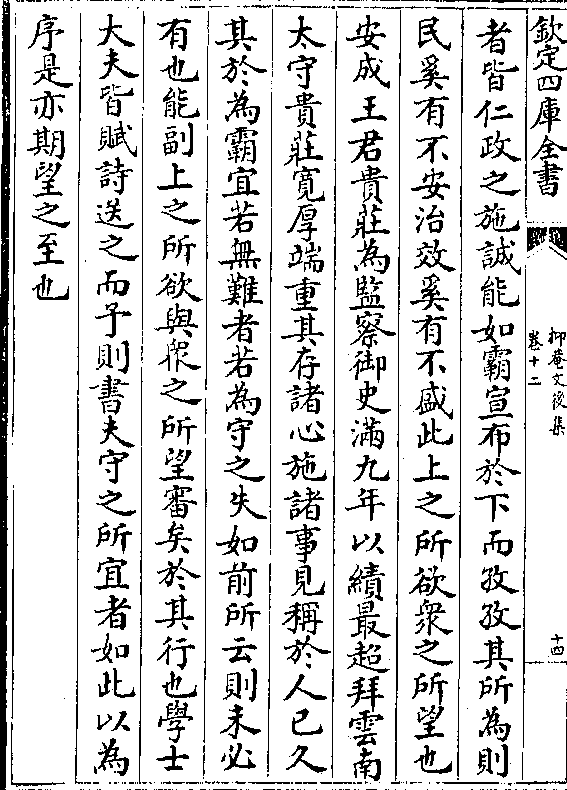 欽定四庫全書
抑菴文後集
卷十二
十四
者皆仁政之施誠能如霸宣布於下而孜孜其所為則
民奚有不安治效奚有不盛此上之所欲衆之所望也
安成王君貴莊為監察御史滿九年以績最超拜雲南
太守貴莊寛厚端重其存諸心施諸事見稱於人已久
其於為霸宜若無難者若為守之失如前所云則未必
有也能副上之所欲與衆之所望審矣於其行也學士
大夫皆賦詩送之而予則書夫守之所宜者如此以為
序是亦期望之至也